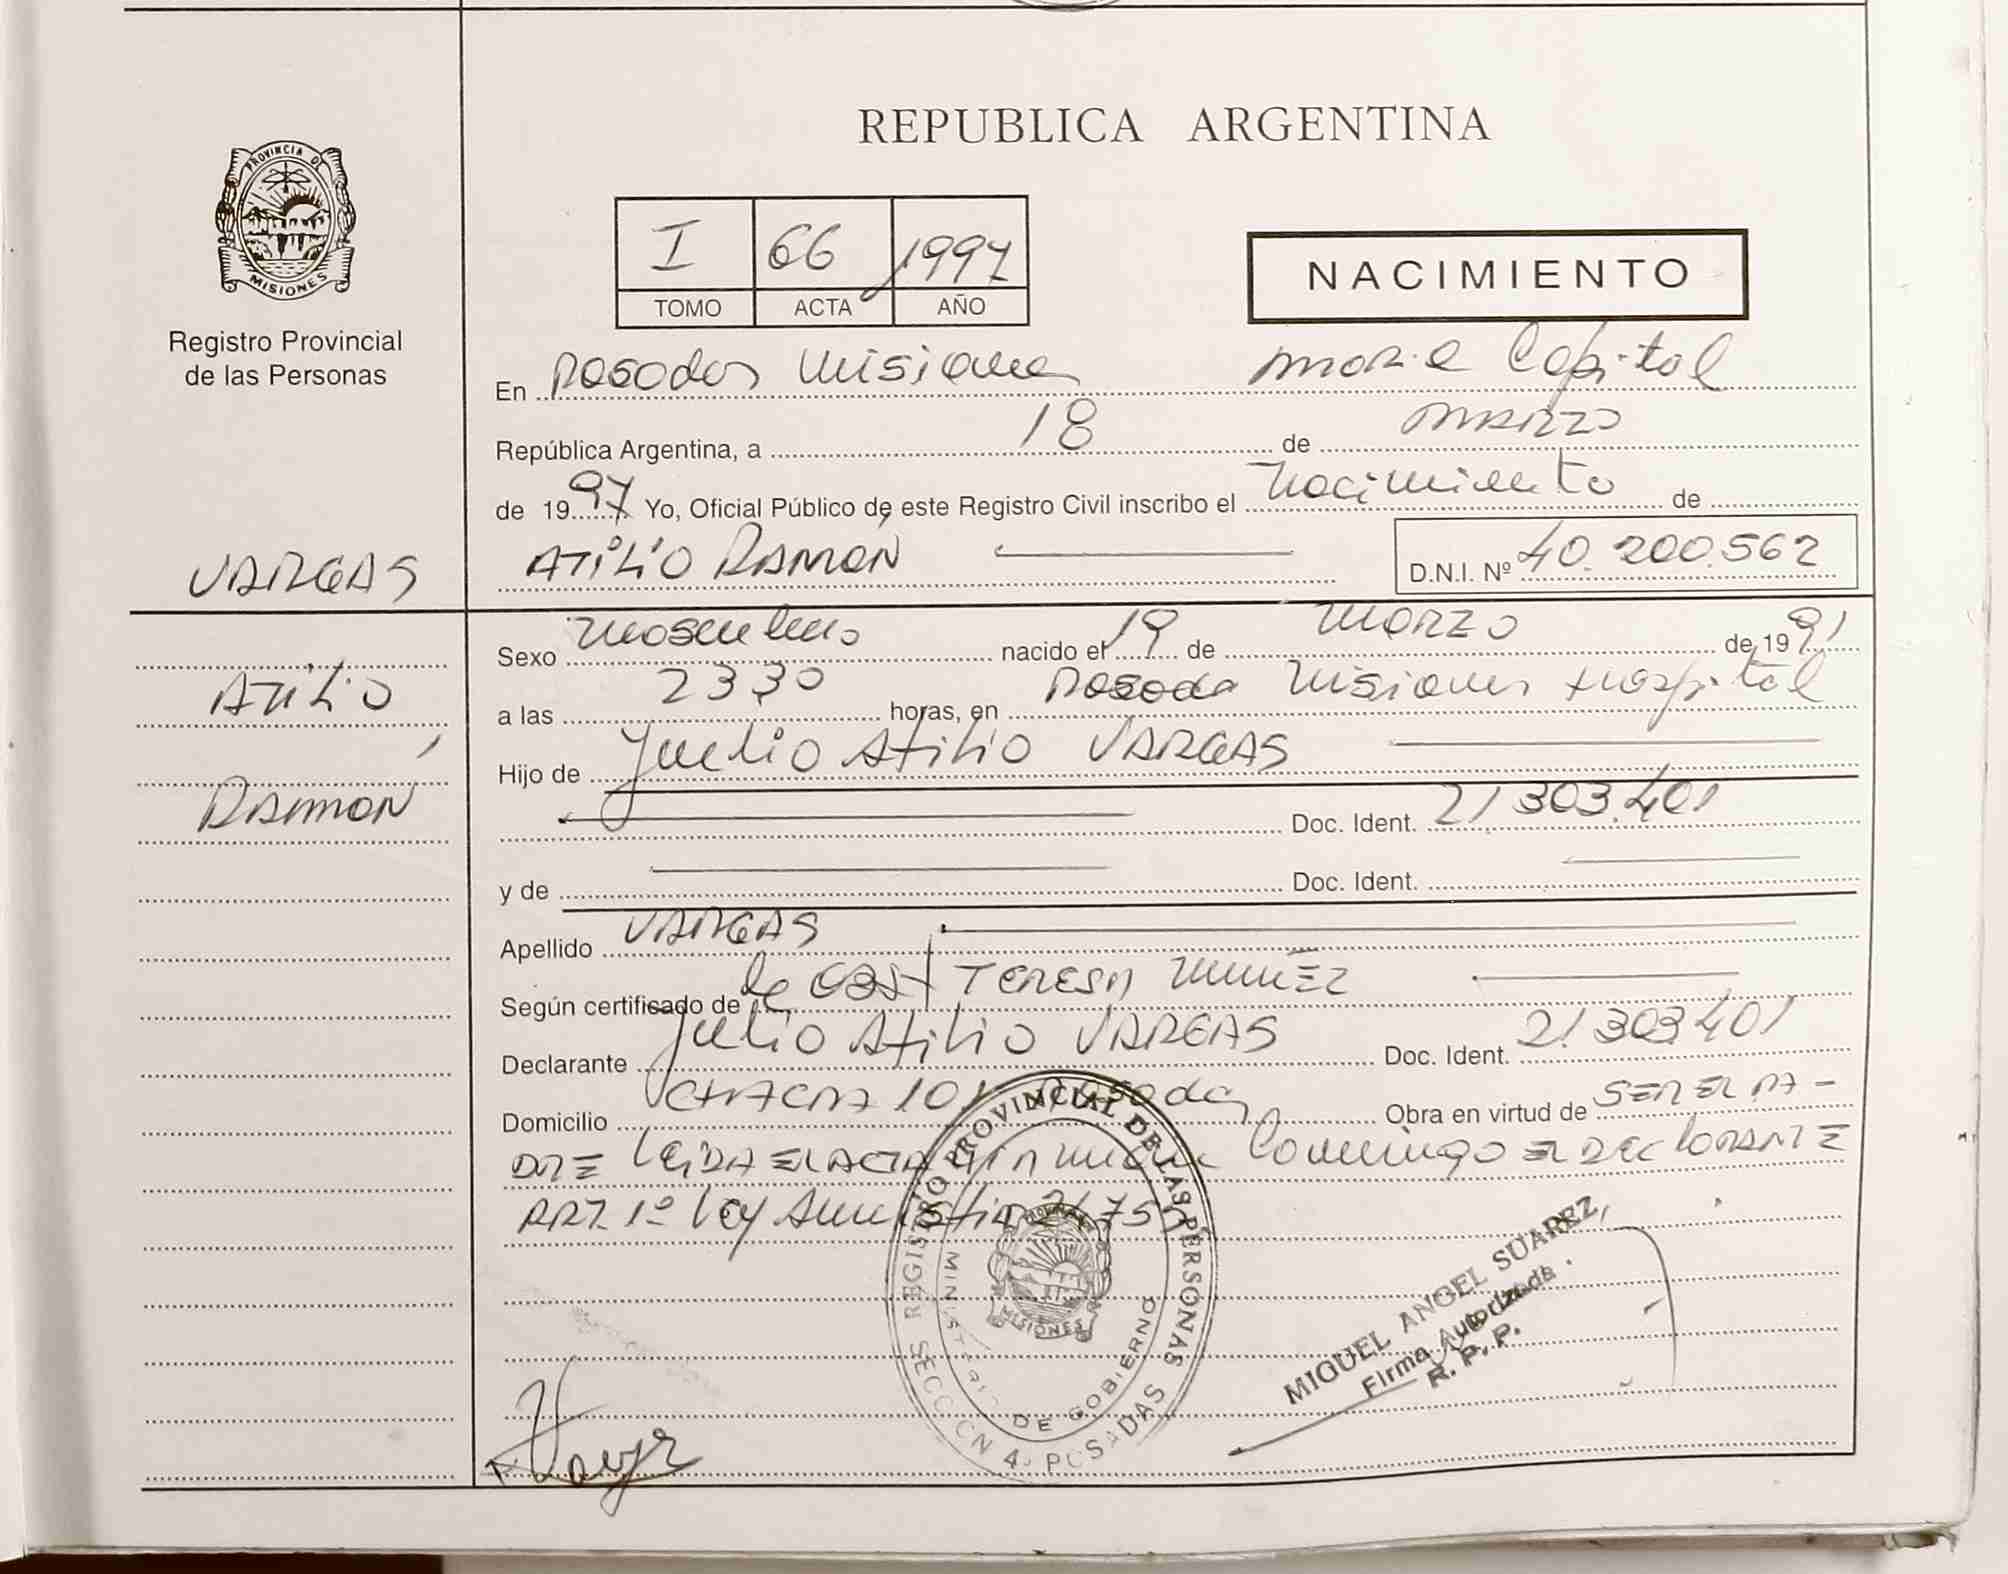 REPUBLICA ARGENTINA
PROVINCIA DE
MISIONES
Registro Provincial
de las Personas
I 66 1997
TOMO ACTA AÑO
NACIMIENTO
En Posadas Misiones Capital
República Argentina, a 18 de MARZO
de 1997 Yo, Oficial Público de este Registro Civil inscribo el Nacimiento de
VARGAS
ATILIO RAMÓN D.N.I. Nº 40.200.562
ATILIO
RAMÓN
Sexo Masculino nacido el 19 de MARZO de 1991
a las 2330 horas, en Posadas Misiones Hospital
Hijo de Julio Atilio VARGAS
Doc. Ident. 21.303.401
y de Doc. Ident.
Apellido VARGAS
Según certificado de de Obst TERESA MUÑEZ
Declarante Julio Atilio VARGAS Doc. Ident. 21.303.401
Domicilio CHACRA 101 Posadas Obra en virtud de SER EL PA-
DRE Leida EL ACTA Comingo DECLORANTE
ART. 1º Ley
REGISTRO PROVINCIAL DE LAS PERSONAS
MINISTERIO DE GOBIERNO
MISIONES
SECCION 4. POSADAS
MIGUEL ANGEL SUAREZ
Firma Autorizada
R. P. P.